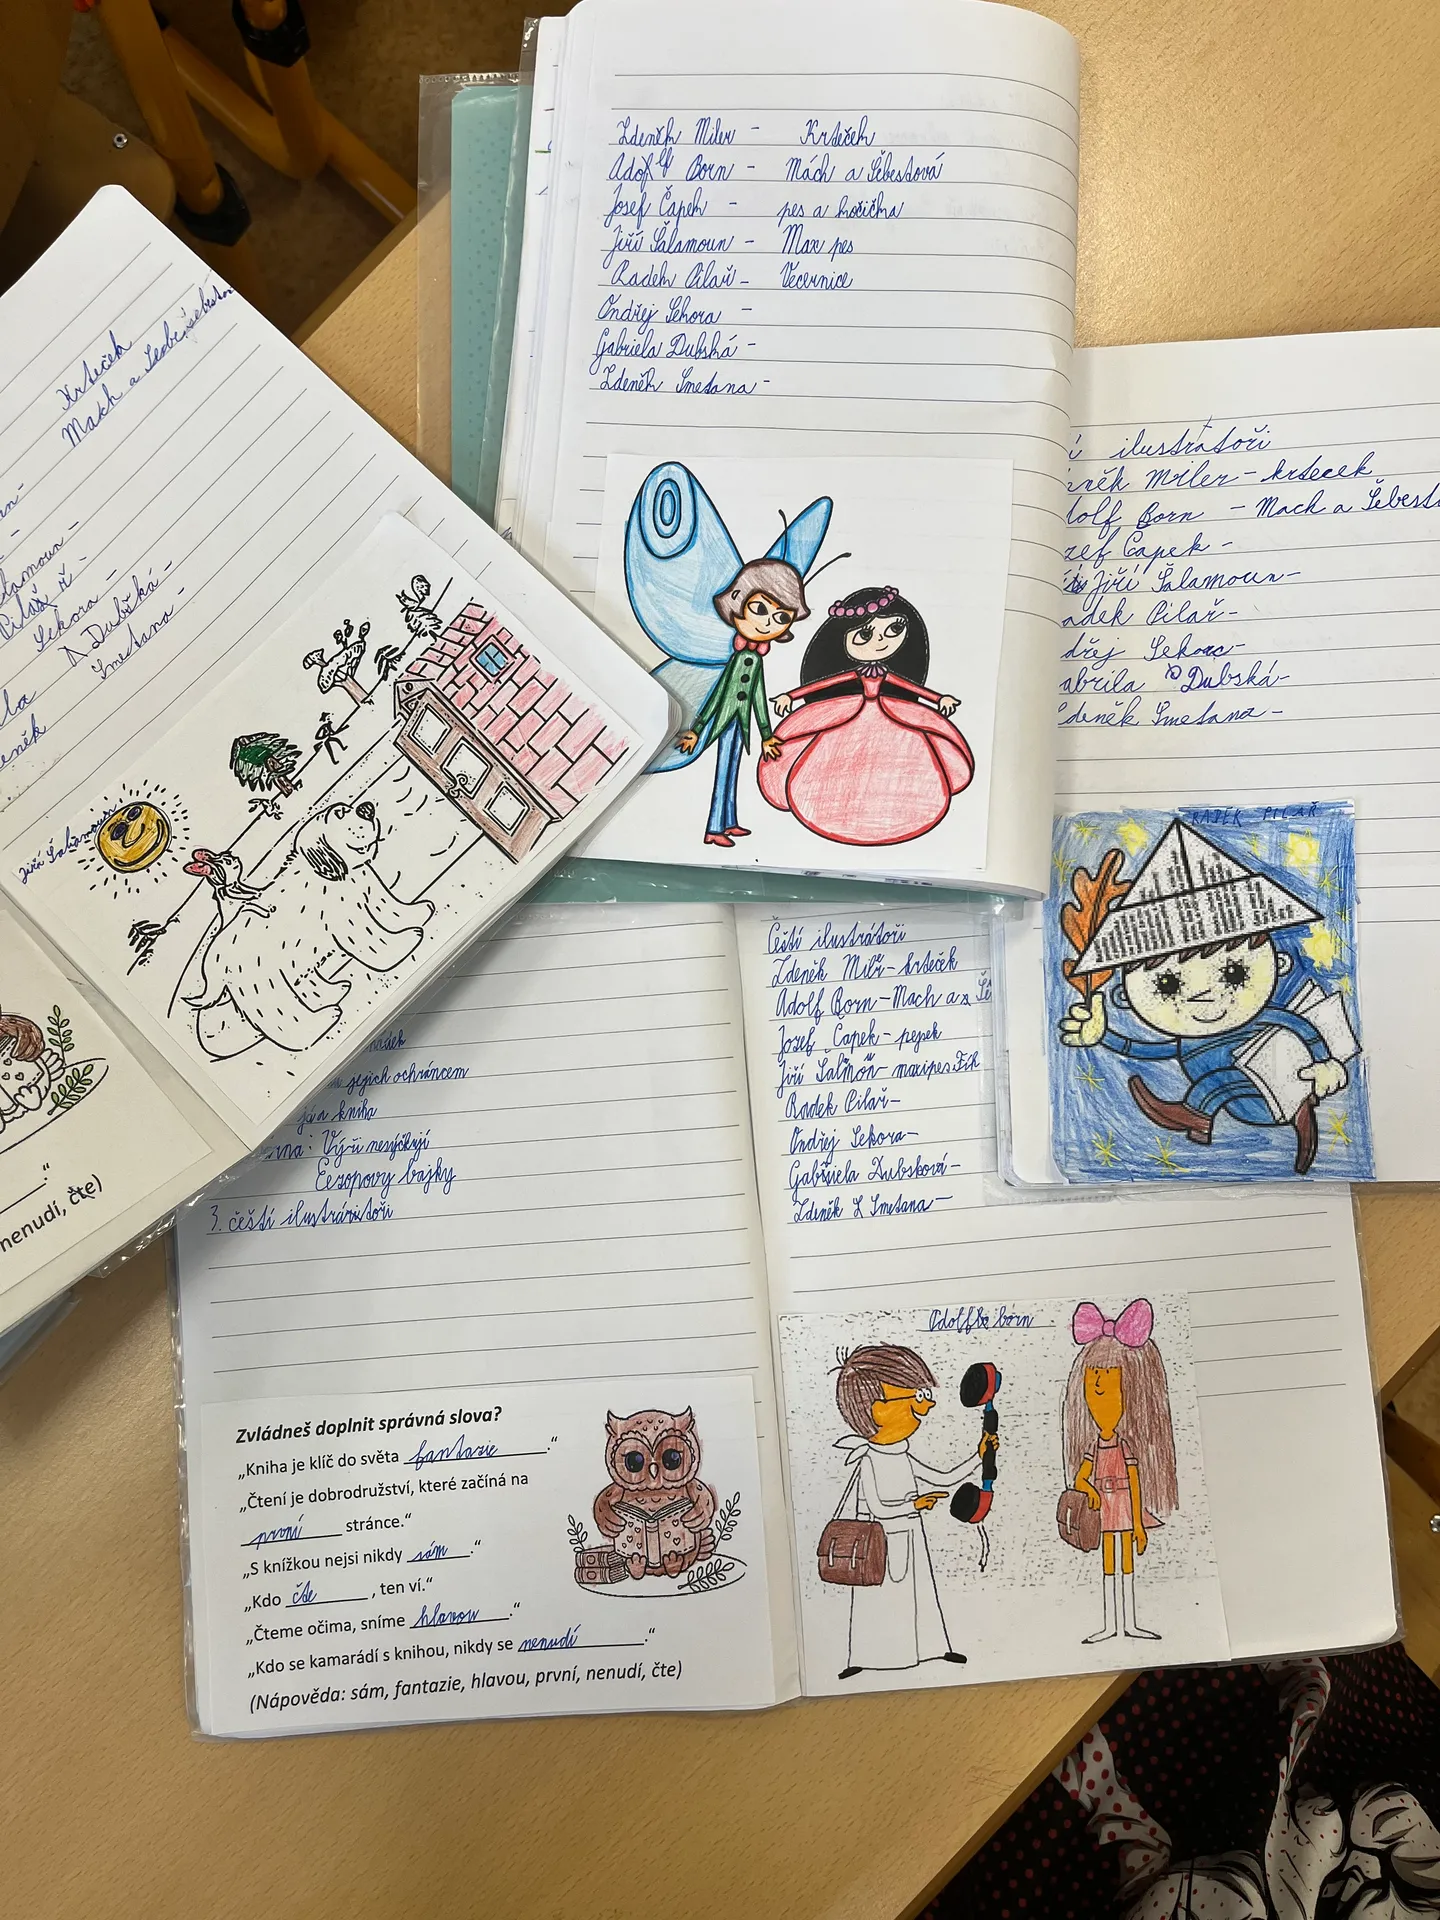 Zdeněk Miler - Krteček
Adolf Born - Mách a Šebestová
Josef Čapek - pes a kočička
Jiří Šalamoun - Max pes
Radek Pilař - Večernice
Ondřej Sekora -
Gabriela Dubská -
Zdeněk Smetana -
Krteček
Mach a
Šalamoun -
Pilař -
Sekora -
Dubská -
Smetana -
Jiří Šalamoun
nenudí, čte)
ilustrátoři
Miler - krtecek
Born - Mach a
Čapek -
Jiří Šalamoun -
Pilař -
Dubská -
Smetana -
RADEK PILAŘ
jejich ochráncem
já a kniha
Výři nesýčkují
Ezopovy bajky
3. čeští
Čeští ilustrátoři
Zdeněk Miler - krteček
Adolf Born - Mach a
Josef Čapek - pejsek
Jiří
Radek Pilař -
Ondřej Sekora -
Gabriela Dubsková -
Zdeněk Smetana -
born
Zvládneš doplnit správná slova?
„Kniha je klíč do světa fantazie.“
„Čtení je dobrodružství, které začíná na
první stránce.“
„S knížkou nejsi nikdy sám.“
„Kdo čte, ten ví.“
„Čteme očima, sníme hlavou.“
„Kdo se kamarádí s knihou, nikdy se nenudí.“
(Nápověda: sám, fantazie, hlavou, první, nenudí, čte)